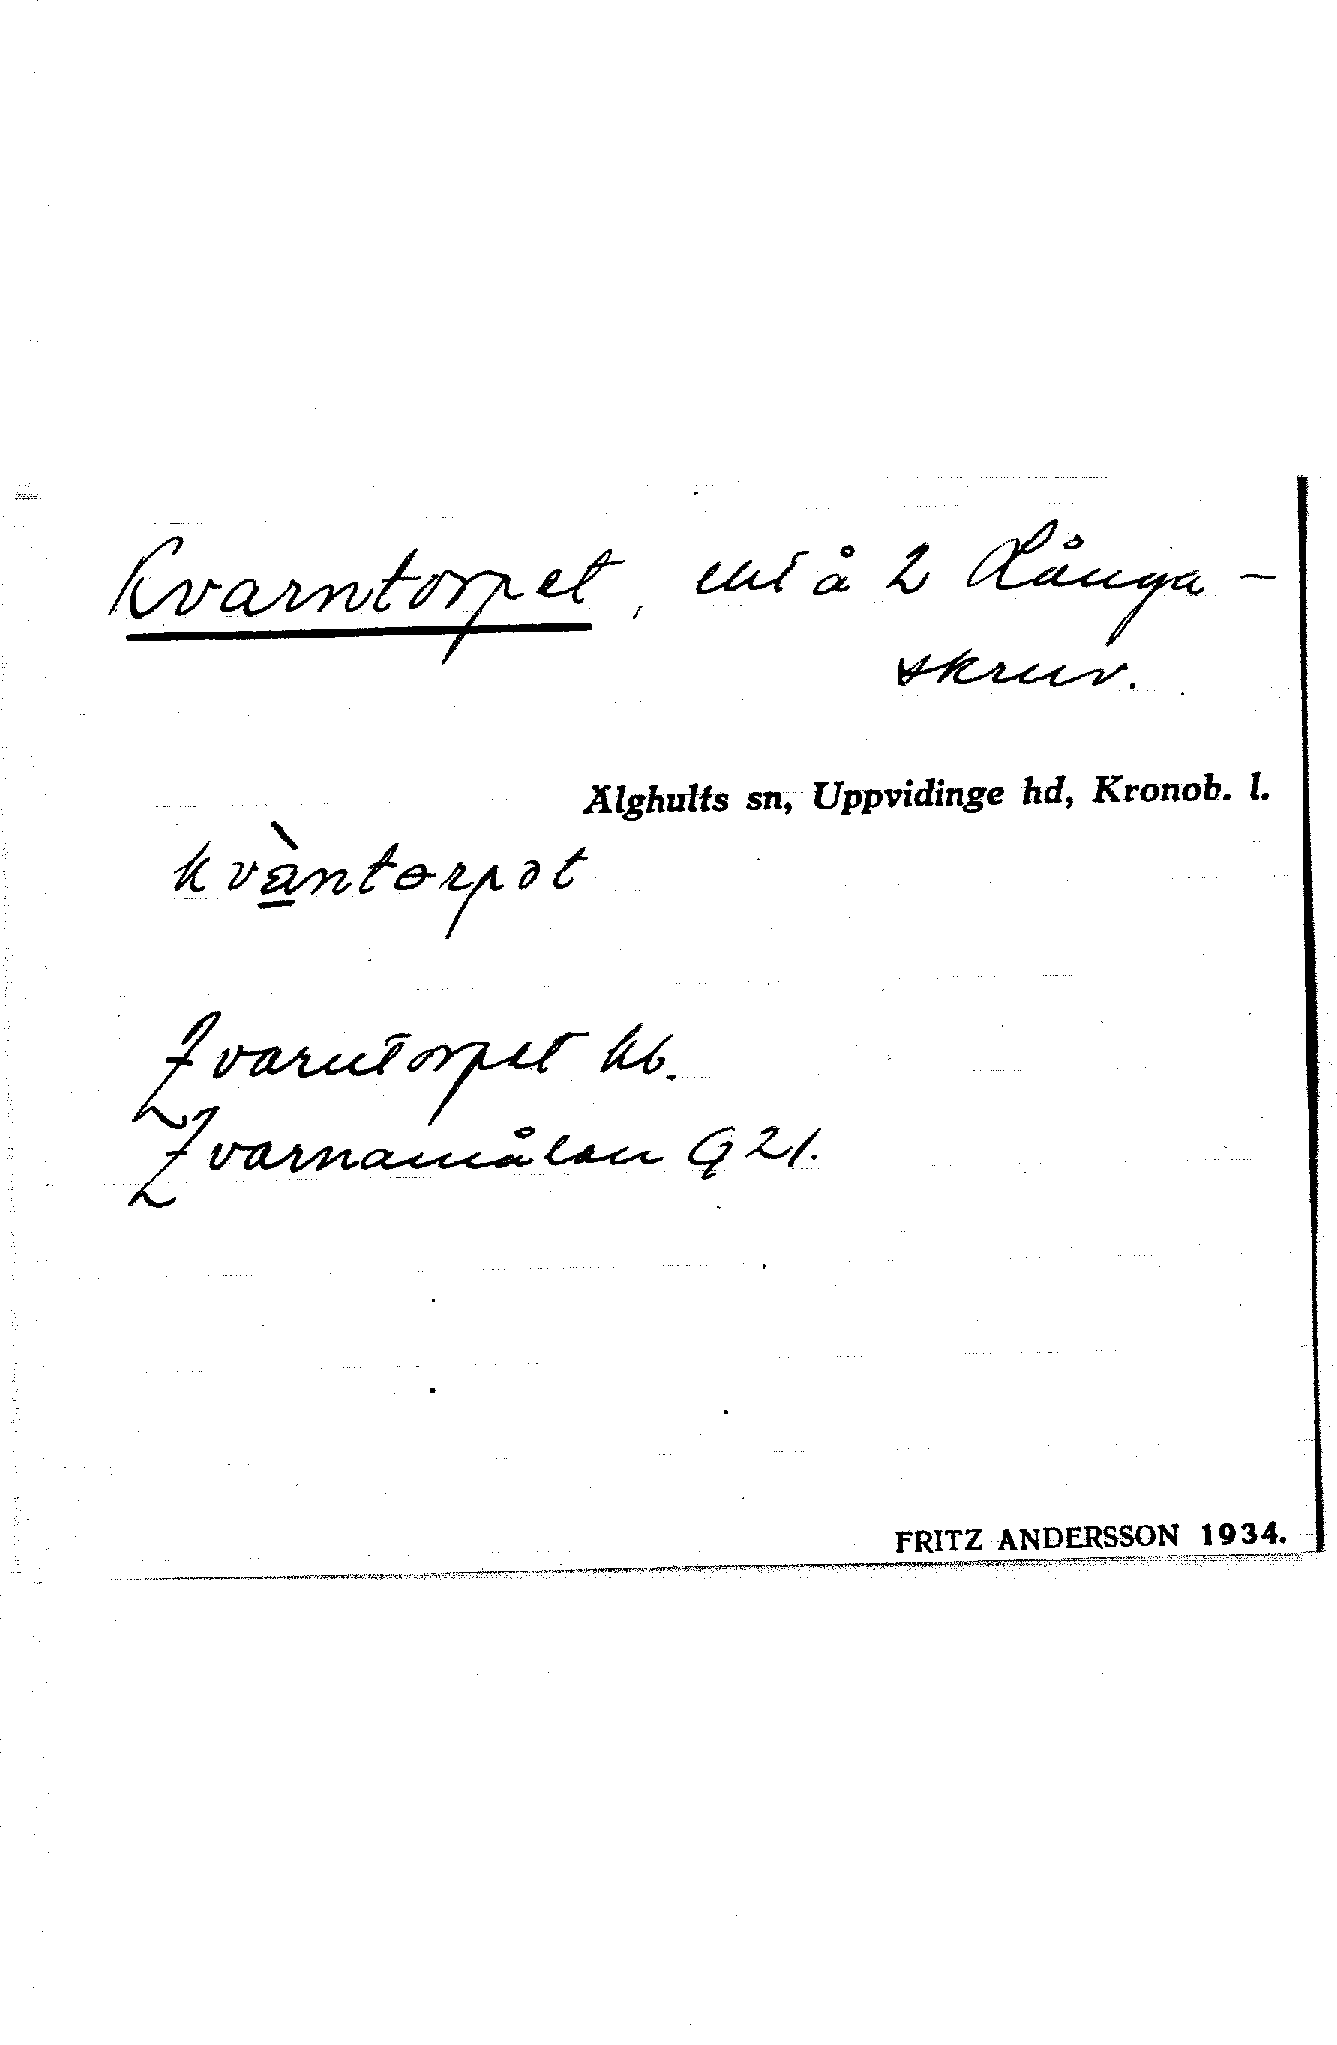 Kvarntorpet, ent å 2 Långa-
skruv.
Älghults sn, Uppvidinge hd, Kronob. l.
kvàntorpət
Qvarntorpet kb.
Qvarnamålen G 21.
FRITZ ANDERSSON 1934.